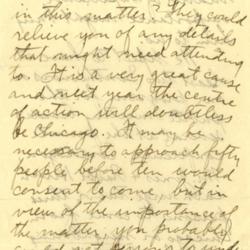 in this matter? They could
relieve you of any details
that might need attending
to. It is a very great cause
and next year the centre
of action will doubtless
be Chicago. It may be
necessary to approach fifty
people before ten would
consent to come but in
view of the importance of
the matter, you probably